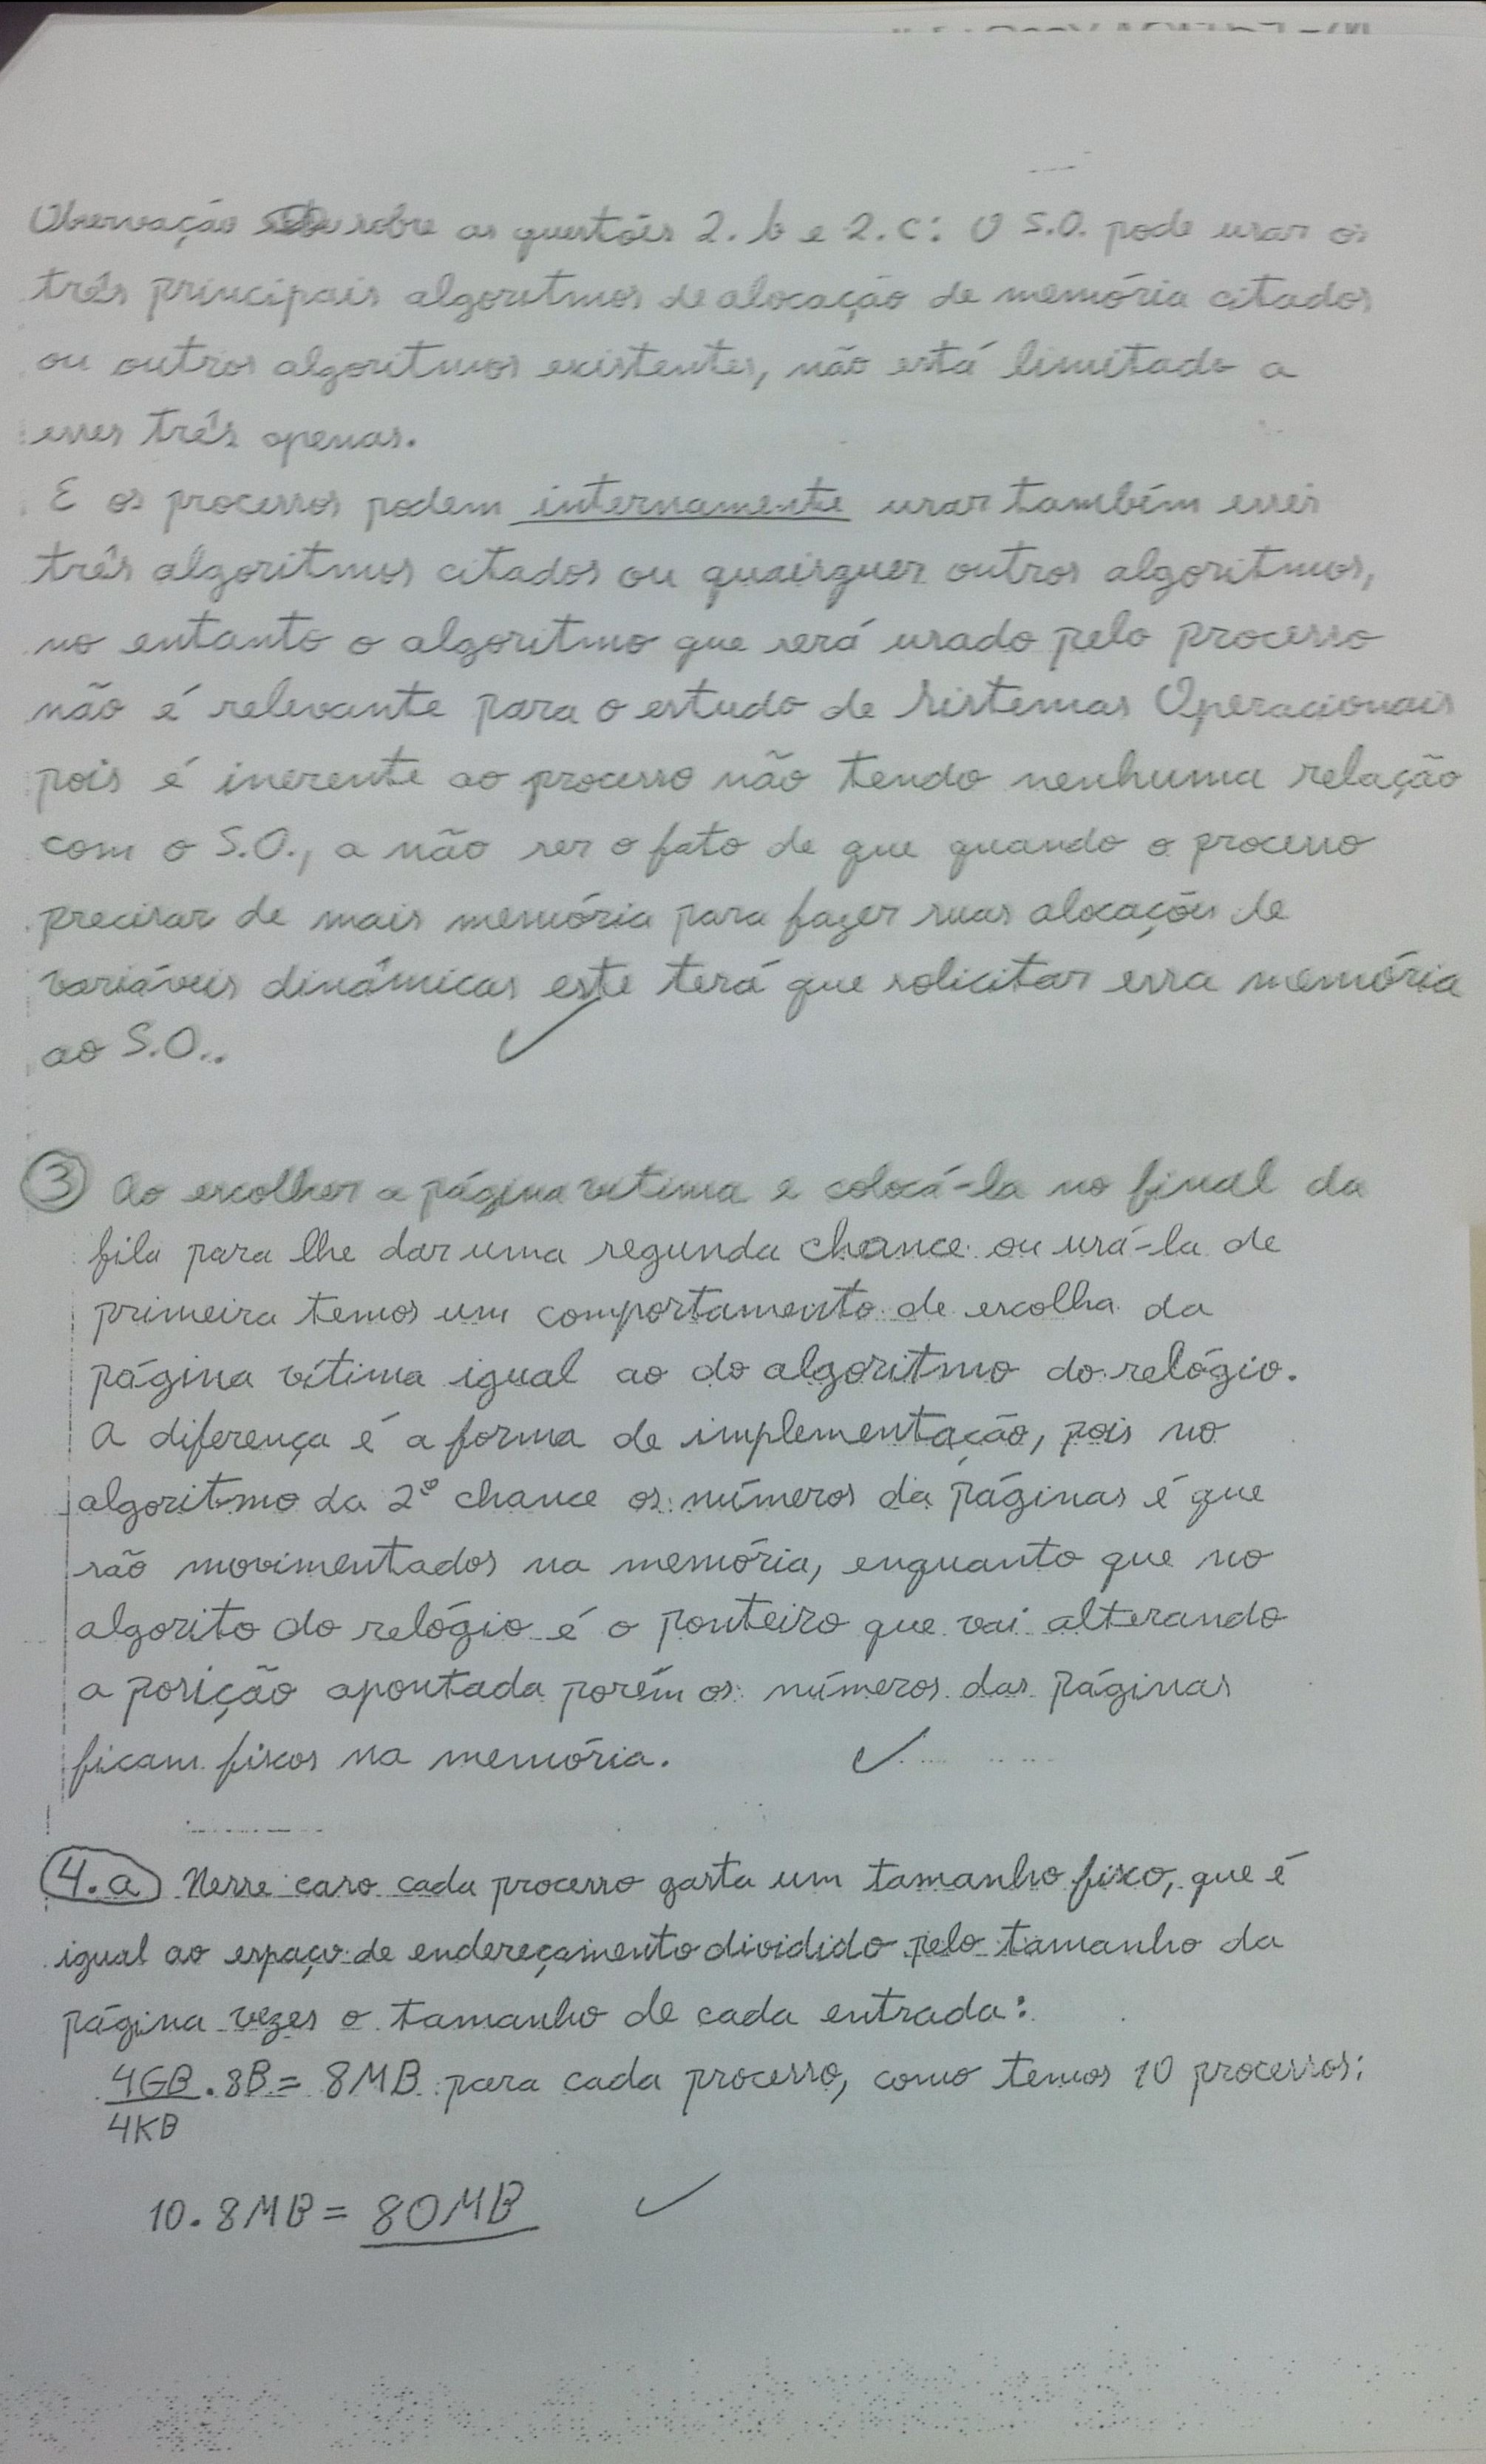 Observação sobre as questões 2.b e 2.c: O S.O. pode usar os
três principais algoritmos de alocação de memória citados
ou outros algoritmos existentes, não está limitado a
esses três apenas.
E os processos podem internamente usar também esses
três algoritmos citados ou quaisquer outros algoritmos,
no entanto o algoritmo que será usado pelo processo
não é relevante para o estudo de Sistemas Operacionais
pois é inerente ao processo não tendo nenhuma relação
com o S.O., a não ser o fato de que quando o processo
precisar de mais memória para fazer suas alocações de
variáveis dinâmicas este terá que solicitar essa memória
ao S.O..
3 Ao escolher a página vítima e colocá-la no final da
fila para lhe dar uma segunda chance ou usá-la de
primeira temos um comportamento de escolha da
página vítima igual ao do algoritmo do relógio.
A diferença é a forma de implementação, pois no
algoritmo da 2º chance os números da páginas é que
são movimentados na memória, enquanto que no
algorito do relógio é o ponteiro que vai alterando
a posição apontada porém os números das páginas
ficam fixos na memória.
4.a Nesse caso cada processo gasta um tamanho fixo, que é
igual ao espaço de endereçamento dividido pelo tamanho da
página vezes o tamanho de cada entrada:
4GB . 8B = 8MB para cada processo, como temos 10 processos:
4KB
10 . 8MB = 80MB